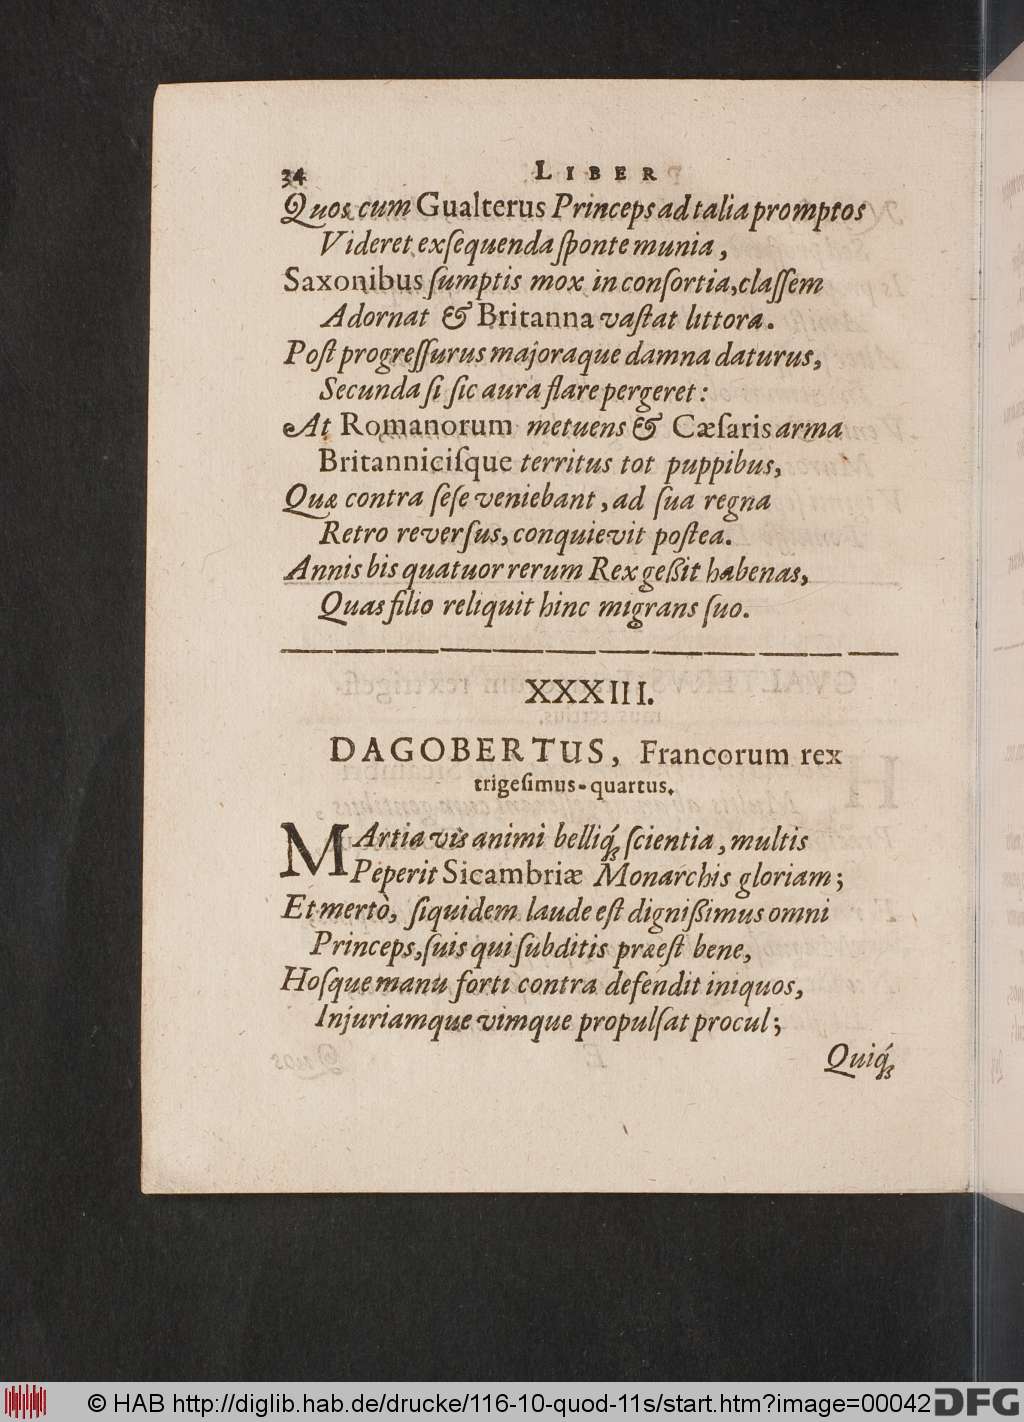 34 LIBER
Quos cum Gualterus Princeps ad talia promptos
Videret exſequenda ſponte munia,
Saxonibus ſumptis mox in conſortia, claſſem
Adornat & Britanna vaſtat littora.
Poſt progreſſurus majoraque damna daturus,
Secunda ſi ſic aura flare pergeret:
At Romanorum metuens & Cæſaris arma
Britanniciſque territus tot puppibus,
Quæ contra ſeſe veniebant, ad ſua regna
Retro reverſus, conquievit poſtea.
Annis bis quatuor rerum Rex geßit habenas,
Quas filio reliquit hinc migrans ſuo.
XXXIII.
DAGOBERTUS, Francorum rex
trigeſimus-quartus.
MArtia vis animi belliq́; ſcientia, multis
Peperit Sicambriæ Monarchis gloriam;
Et mertò, ſiquidem laude eſt dignißimus omni
Princeps, ſuis qui ſubditis præeſt bene,
Hoſque manu forti contra defendit iniquos,
Injuriamque vimque propulſat procul;
Quiq́;
© HAB http://diglib.hab.de/drucke/116-10-quod-11s/start.htm?image=00042 DFG